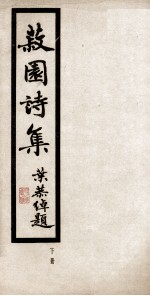 菽園詩集
葉恭綽題
下冊